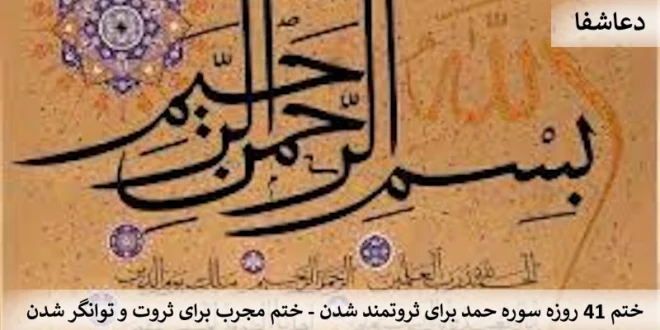 دعاشفا
الله
بسم الرحمن الرحیم
الحمد لله رب العالمین الرحمن الرحیم مالک یوم الدین
ختم 41 روزه سوره حمد برای ثروتمند شدن - ختم مجرب برای ثروت و توانگر شدن